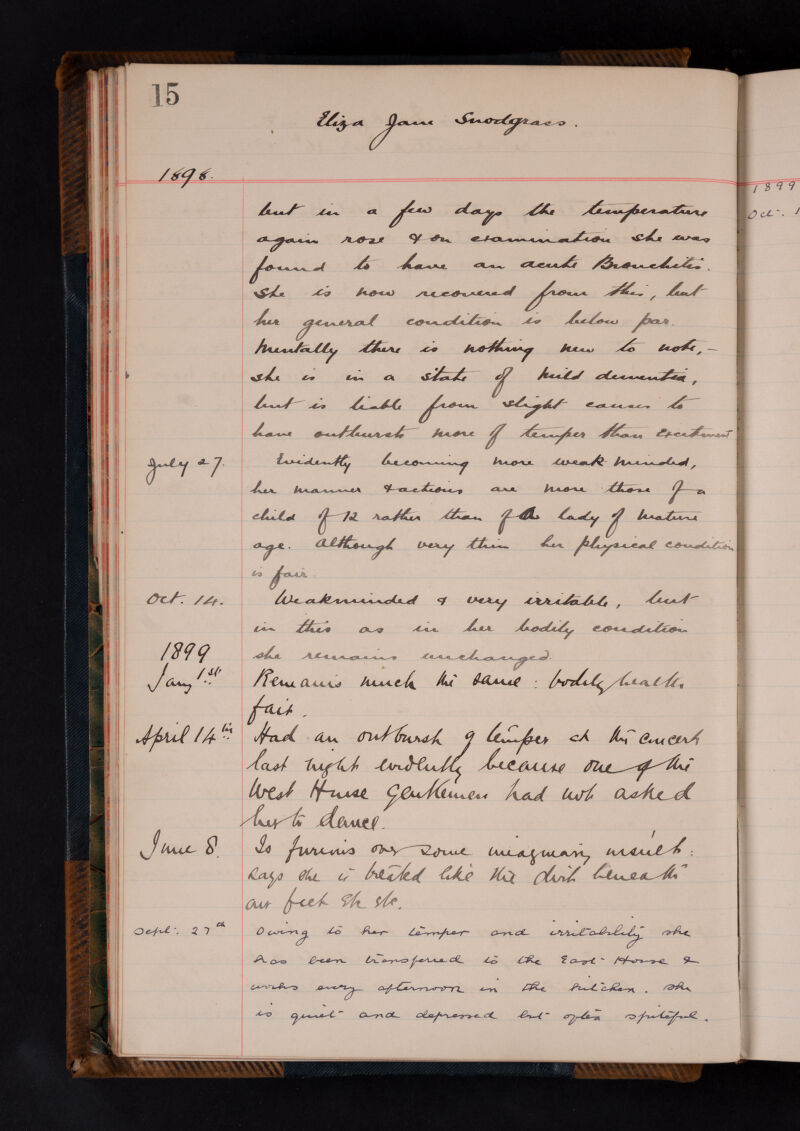 15
Eliza Jane Snodgrass.
1898.
but in a few days the temperature
again rose & on examination she was
found to have an acute Bronchitis.
She is now recovered from this, but
her general condition is below par.
Mentally there is nothing new to note, -
she is in a state of mild dementia,
but is liable from slight causes to
have outbursts more of temper than excitement
July 27. Evidently becoming more weak minded,
her manner & actions are more those of a
child of 12 rather than of a lady of mature
age. Although very thin her physical condition
is fair.
Oct. 14. Weakminded & very irritable, but
in this as in her bodily condition
she remains unchanged.
1899
Jany 1st. Remains much the same : bodily health
fair.
April 14th Had an outburst of temper at the concert
last night evidently because one of the
West House Gentlemen had not asked
her to dance.
June 8. Is furious over some imaginary insult :
says she is treated like the dirt beneath
our feet etc etc.
Sept. 27th Owing to her temper and irritability she
has been transferred to the East House &
works every afternoon in the kitchen. She
is quiet and depressed but often spiteful.
1899
Oct. 1